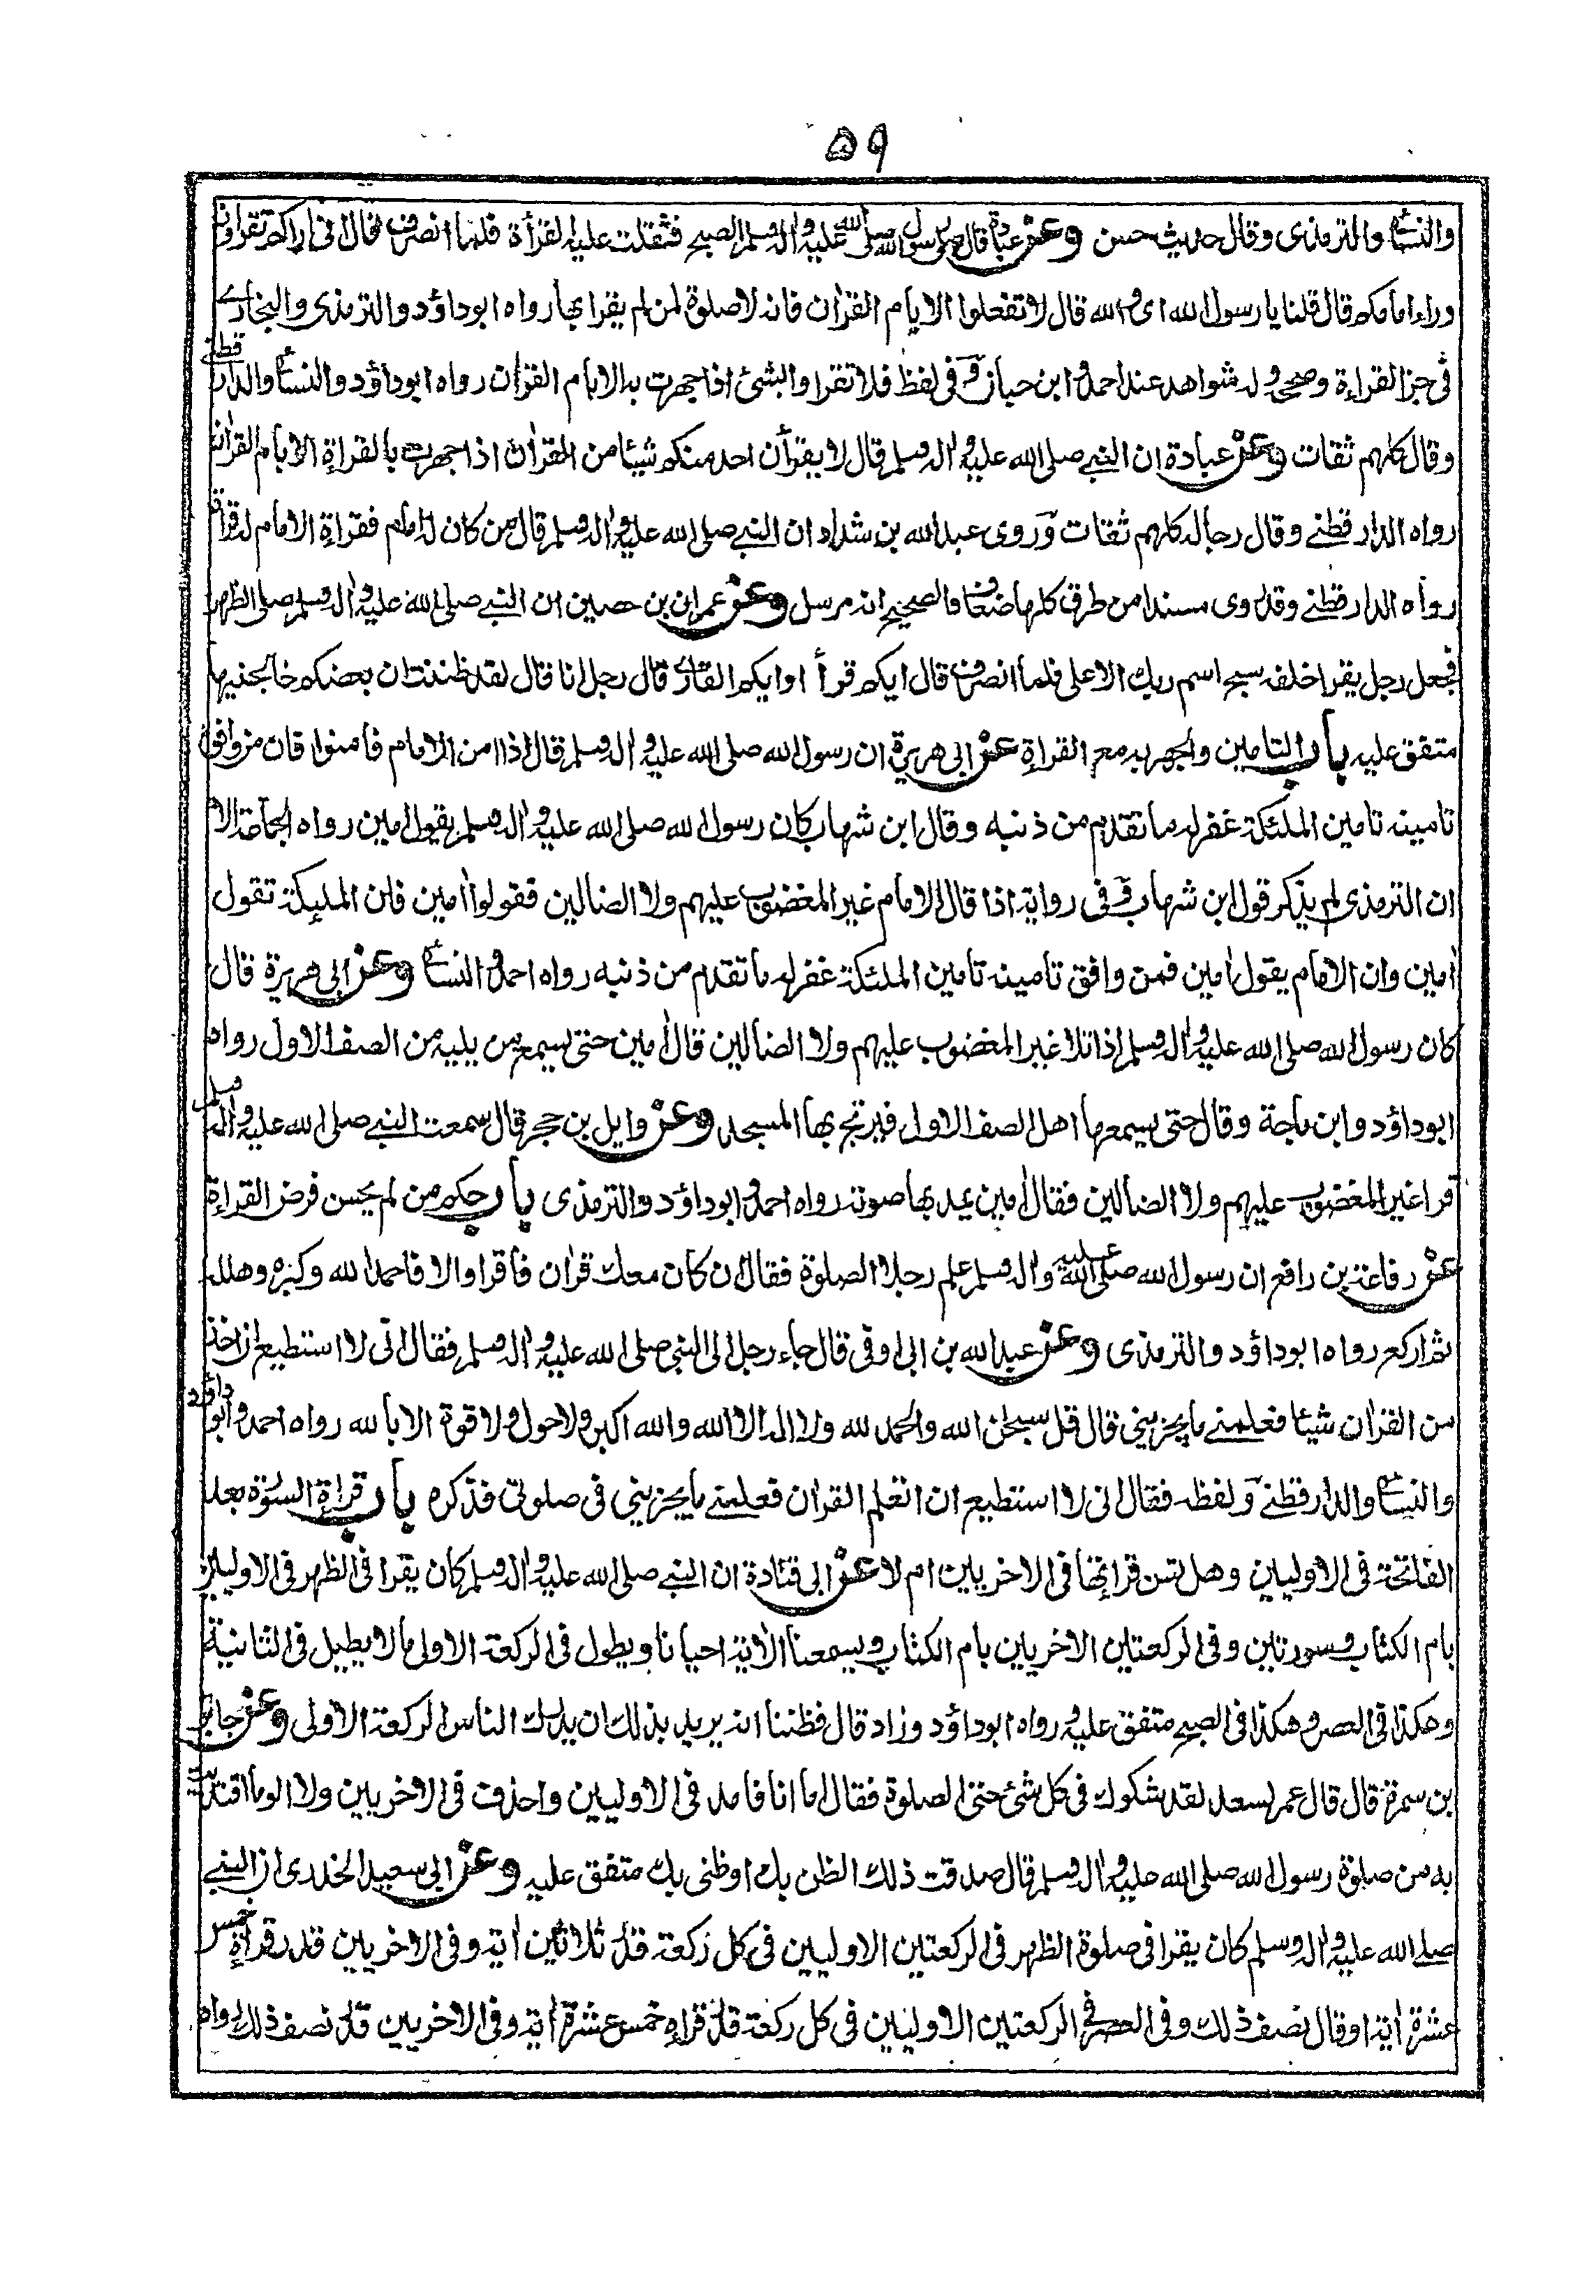 ٥٩
والنسائي والترمذي وقال حديث حسن وعن عبادة قال صلى رسول الله صلى الله عليه واله وسلم الصبح فثقلت عليه القرأة فلما انصرف قال اني اراكم تقراون
وراء امامكم قال قلنا يا رسول الله اى والله قال لا تفعلوا الا بام القران فانه لا صلوة لمن لم يقرا بها رواه ابوداؤد والترمذى والبخارے
فى جزء القراءة وصححه وله شواهد عند احمد وابن حبان وفى لفظ فلا تقراوا بشئ اذا جهرت به الا بام القران رواه ابوداؤد والنسائ والدارقطنے
وقال كلهم ثقات وعن عبادة ان النبے صلى الله عليه واله وسلم قال لا يقرأن احد منكم شيئا من القران اذا جهرت بالقراءة الا بام القران
رواه الدارقطنے وقال رجاله كلهم ثقات وروى عبد الله بن شداد ان النبے صلى الله عليه واله وسلم قال من كان له امام فقراءة الامام له قراءة
رواه الدارقطنے وقد روى مسندا من طرق كلها ضعاف والصحيح انه مرسل وعن عمران بن حصين ان النبے صلى الله عليه واله وسلم صلى الظهر
فجعل رجل يقرا خلفه سبح اسم ربك الاعلى فلما انصرف قال ايكم قرأ او ايكم القارئ قال رجل انا قال لقد ظننت ان بعضكم خالجنيها
متفق عليه باب التامين والجهر به مع القراءة عن ابى هريرة ان رسول الله صلى الله عليه واله وسلم قال اذا امن الامام فامنوا فان من وافق
تامينه تامين الملئكة غفر له ما تقدم من ذنبه وقال ابن شهاب كان رسول الله صلى الله عليه واله وسلم يقول امين رواه الجماعة الا
ان الترمذى لم يذكر قول ابن شهاب وفى رواية اذا قال الامام غير المغضوب عليهم ولا الضالين فقولوا امين فان الملئكة تقول
امين وان الامام يقول امين فمن وافق تامينه تامين الملئكة غفر له ما تقدم من ذنبه رواه احمد والنسائ وعن ابى هريرة قال
كان رسول الله صلى الله عليه واله وسلم اذا تلا غير المغضوب عليهم ولا الضالين قال امين حتى يسمع من يليه من الصف الاول رواه
ابوداؤد وابن ماجة وقال حتى يسمعها اهل الصف الاول فيرتج بها المسجد وعن وايل بن حجر قال سمعت النبے صلى الله عليه واله وسلم
قرا غير المغضوب عليهم ولا الضالين فقال امين يمد بها صوته رواه احمد وابوداؤد والترمذى باب حكم من لم يحسن فرض القراءة
عن رفاعة بن رافع ان رسول الله صلى الله عليه واله وسلم علم رجلا الصلوة فقال ان كان معك قران فاقرا والا فاحمد الله وكبره وهلله
ثم اركع رواه ابوداؤد والترمذى وعن عبد الله بن ابى اوفى قال جاء رجل الى النبى صلى الله عليه واله وسلم فقال انى لا استطيع ان اخذ
من القران شيئا فعلمنے ما يجزينى قال قل سبحن الله والحمد لله ولا اله الا الله والله اكبر ولا حول ولا قوة الا بالله رواه احمد وابو داؤد
والنسائ والدارقطنے ولفظه فقال انى لا استطيع ان اتعلم القران فعلمنے ما يجزينى فى صلوتى فذكره باب قراءة السورة بعد
الفاتحة فى الاوليين وهل تسن قراتها فى الاخريين ام لا عن ابى قتادة ان النبے صلى الله عليه واله وسلم كان يقرا فى الظهر فى الاوليين
بام الكتاب وسورتين وفى الركعتين الاخريين بام الكتاب ويسمعنا الاية احيانا ويطول فى الركعة الاولى ما لا يطيل فى الثانية
وهكذا فى العصر وهكذا فى الصبح متفق عليه ورواه ابوداؤد وزاد قال فظننا انه يريد بذلك ان يدرك الناس الركعة الاولى وعن جابر
بن سمرة قال قال عمر لسعد لقد شكوك فى كل شئ حتى الصلوة فقال اما انا فامد فى الاوليين واحذف فى الاخريين ولا الو ما اقتديت
به من صلوة رسول الله صلى الله عليه واله وسلم قال صدقت ذلك الظن بك او ظنى بك متفق عليه وعن ابى سعيد الخدرى ان النبے
صلى الله عليه واله وسلم كان يقرا فى صلوة الظهر فى الركعتين الاوليين فى كل ركعة قدر ثلاثين اية وفى الاخريين قدر قراءة خمس
عشرة اية او قال نصف ذلك وفى العصر فى الركعتين الاوليين فى كل ركعة قدر قراءة خمس عشرة اية وفى الاخريين قدر نصف ذلك رواه